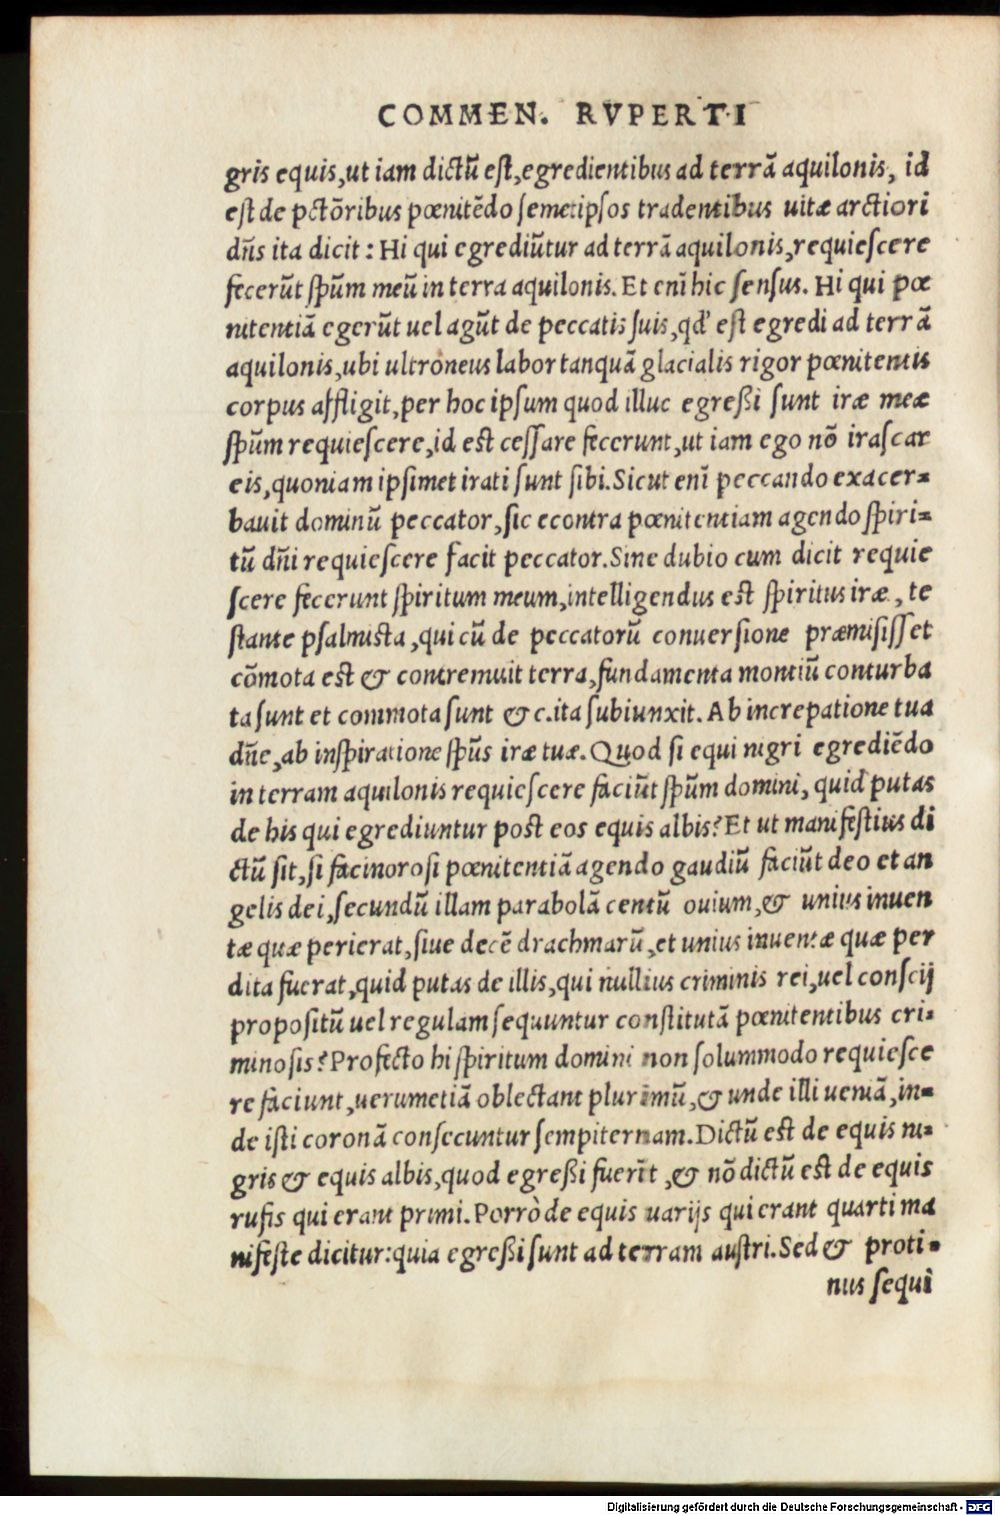 COMMEN. RVPERTI
gris equis, ut iam dictũ est, egredientibus ad terrã aquilonis, id
est de pctõribus pœnitẽdo semetipsos tradentibus uitæ arctiori
dñs ita dicit: Hi qui egrediũtur ad terrã aquilonis, requiescere
fecerũt spũm meũ in terra aquilonis. Et enĩ hic sensus. Hi qui pœ
nitentiã egerũt uel agũt de peccatis suis, qd' est egredi ad terrã
aquilonis, ubi ultroneus labor tanquã glacialis rigor pœnitentis
corpus affligit, per hoc ipsum quod illuc egreßi sunt iræ meæ
spũm requiescere, id est cessare fecerunt, ut iam ego nõ irascar
eis, quoniam ipsimet irati sunt sibi. Sicut enĩ peccando exacer-
bauit dominũ peccator, sic econtra pœnitentiam agendo spiri-
tũ dñi requiescere facit peccator. Sine dubio cum dicit requie
scere fecerunt spiritum meum, intelligendus est spiritus iræ, te
stante psalmista, qui cũ de peccatorũ conuersione præmisisset
cõmota est & contremuit terra, fundamenta montiũ conturba
ta sunt et commota sunt &c. ita subiunxit. Ab increpatione tua
dñe, ab inspiratione spũs iræ tuæ. Quod si equi nigri egrediẽdo
in terram aquilonis requiescere faciũt spũm domini, quid putas
de his qui egrediuntur post eos equis albis? Et ut manifestius di
ctũ sit, si facinorosi pœnitentiã agendo gaudiũ faciũt deo et an
gelis dei, secundũ illam parabolã centũ ouium, & unius inuen
tæ quæ perierat, siue decẽ drachmarũ, et unius inuentæ quæ per
dita fuerat, quid putas de illis, qui nullius criminis rei, uel conscij
propositũ uel regulam sequuntur constitutã pœnitentibus cri-
minosis? Profecto hi spiritum domini non solummodo requiesce
re faciunt, uerumetiã oblectant plurimũ, & unde illi ueniã, in-
de isti coronã consecuntur sempiternam. Dictũ est de equis ni-
gris & equis albis, quod egreßi fuerĩt, & nõ dictũ est de equis
rufis qui erant primi. Porrò de equis uarijs qui erant quarti ma
nifeste dicitur: quia egreßi sunt ad terram austri. Sed & proti-
nus sequi
Digitalisierung gefördert durch die Deutsche Forschungsgemeinschaft - DFG